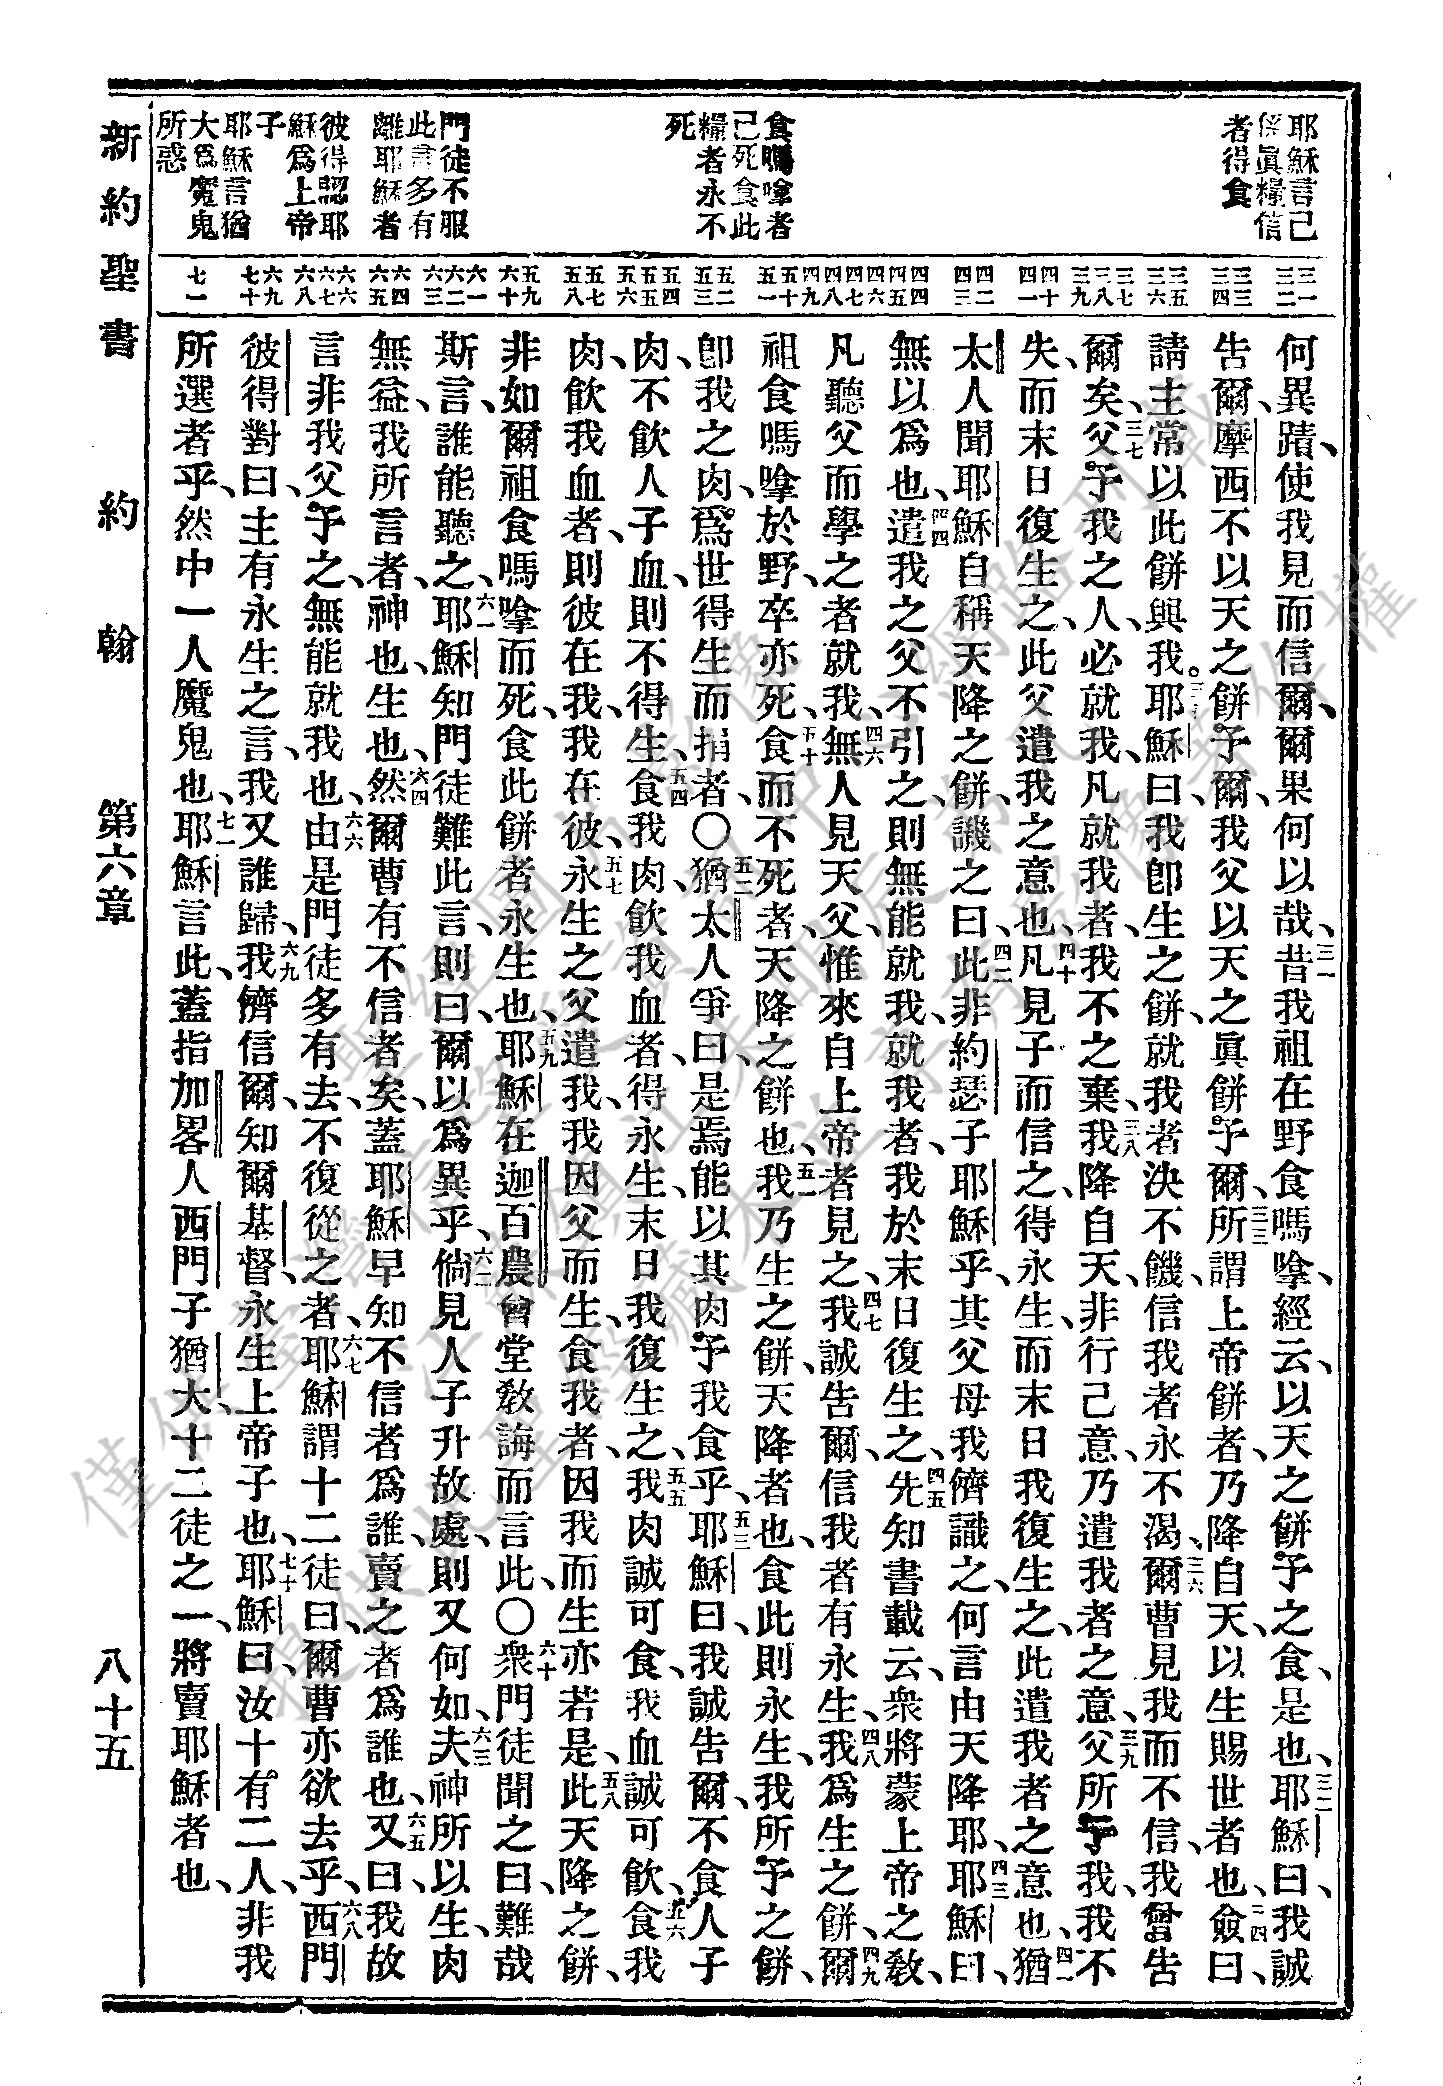 耶穌言己
係眞糧信
者得食
食嗎嗱者
己死食此
糧者永不
死
門徒不服
此言多有
離耶穌者
彼得認耶
穌爲上帝
子
耶穌言猶
大爲魔鬼
所惑
三一 三二 三三 三四 三五 三六 三七 三八 三九 四十 四一 四二 四三 四四 四五 四六 四七 四八 四九 五十 五一 五二 五三 五四 五五 五六 五七 五八 五九 六十 六一 六二 六三 六四 六五 六六 六七 六八 六九 七十 七一
何異蹟、使我見而信爾、爾果何以哉、三一昔我祖在野食嗎嗱、經云、以天之餅予之食、是也、三二耶穌曰、我誠
告爾、摩西不以天之餅予爾、我父以天之眞餅予爾、三三所謂上帝餅者、乃降自天、以生賜世者也、三四僉曰、
請主常以此餅與我。三五耶穌曰、我卽生之餅、就我者決不饑、信我者永不渴、三六爾曹見我而不信、我曾告
爾矣、三七父予我之人、必就我、凡就我者、我不之棄、三八我降自天、非行己意、乃遣我者之意、三九父所予我、我不
失、而末日復生之、此父遣我之意也、四十凡見子而信之、得永生、而末日我復生之、此遣我者之意也、四一猶
太人聞耶穌自稱天降之餅、譏之曰、四二此非約瑟子耶穌乎、其父母我儕識之、何言由天降耶、四三耶穌曰、
無以爲也、四四遣我之父不引之、則無能就我、就我者、我於末日復生之、四五先知書載云、衆將蒙上帝之敎、
凡聽父而學之者就我、四六無人見天父、惟來自上帝者見之、四七我誠告爾、信我者有永生、四八我爲生之餅、四九爾
祖食嗎嗱於野、卒亦死、五十食而不死者、天降之餅也、五一我乃生之餅、天降者也、食此則永生、我所予之餅、
卽我之肉、爲世得生而捐者、〇五二猶太人爭曰、是焉能以其肉予我食乎、五三耶穌曰、我誠告爾、不食人子
肉、不飮人子血、則不得生、五四食我肉、飮我血者、得永生、末日我復生之、五五我肉誠可食、我血誠可飮、五六食我
肉、飮我血者、則彼在我、我在彼、五七永生之父遣我、我因父而生、食我者、因我而生亦若是、五八此天降之餅、
非如爾祖食嗎嗱而死、食此餅者、永生也、五九耶穌在迦百農會堂敎誨而言此、〇六十衆門徒聞之曰、難哉
斯言、誰能聽之、六一耶穌知門徒難此言、則曰、爾以爲異乎、六二倘見人子升故處、則又何如、六三夫神所以生、肉
無益、我所言者、神也、生也、六四然爾曹有不信者矣、蓋耶穌早知不信者爲誰、賣之者爲誰也、六五又曰、我故
言非我父予之、無能就我也、六六由是門徒多有去、不復從之者、六七耶穌謂十二徒曰、爾曹亦欲去乎、六八西門
彼得對曰、主有永生之言、我又誰歸、六九我儕信爾、知爾基督、永生上帝子也、七十耶穌曰、汝十有二人、非我
所選者乎、然中一人魔鬼也、七一耶穌言此、蓋指加畧人西門子猶大、十二徒之一、將賣耶穌者也、
新約聖書 約翰 第六章 八十五